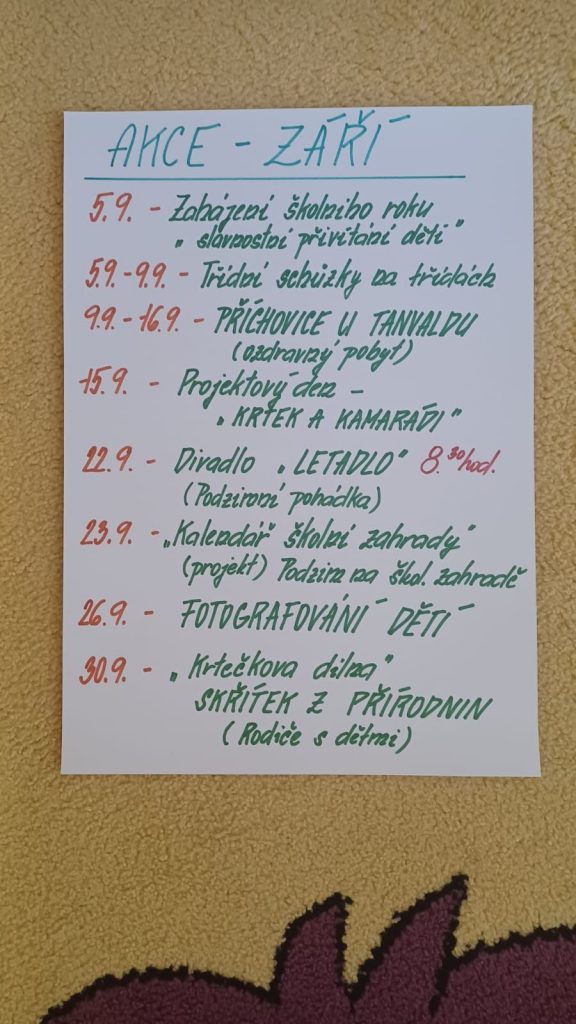 AKCE - ZÁŘÍ
5.9. - Zahájení školního roku
„ slavnostní přivítání dětí "
5.9. - 9.9. - Třídní schůzky na třídách
9.9. - 16.9. - PŘÍCHOVICE U TANVALDU
(ozdravný pobyt)
15.9. - Projektový den -
„ KRTEK A KAMARÁDI "
22.9. - Divadlo „ LETADLO " 8.30 hod.
(Podzimní pohádka)
23.9. - „Kalendář školní zahrady"
(projekt) Podzim na škol. zahradě
26.9. - FOTOGRAFOVÁNÍ DĚTÍ
30.9. - „ Krtečkova dílna"
SKŘÍTEK Z PŘÍRODNIN
( Rodiče s dětmi)